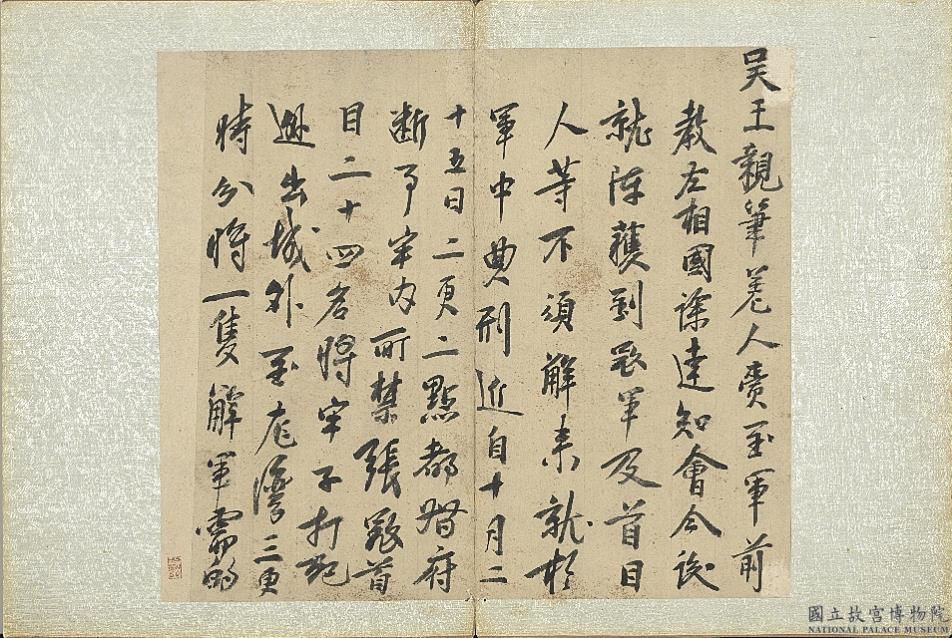 吳王親筆差人賫至軍前
教左相國徐達知會今後
就陣獲到寇軍及首目
人等不須解來就於
軍中典刑近自十月二
十五日二更二點都督府
斷事牢內所禁張寇首
目二十四名將牢子打死
出城外至龍灣三更
時分將一隻解軍需的
國立故宮博物院
NATIONAL PALACE MUSEUM